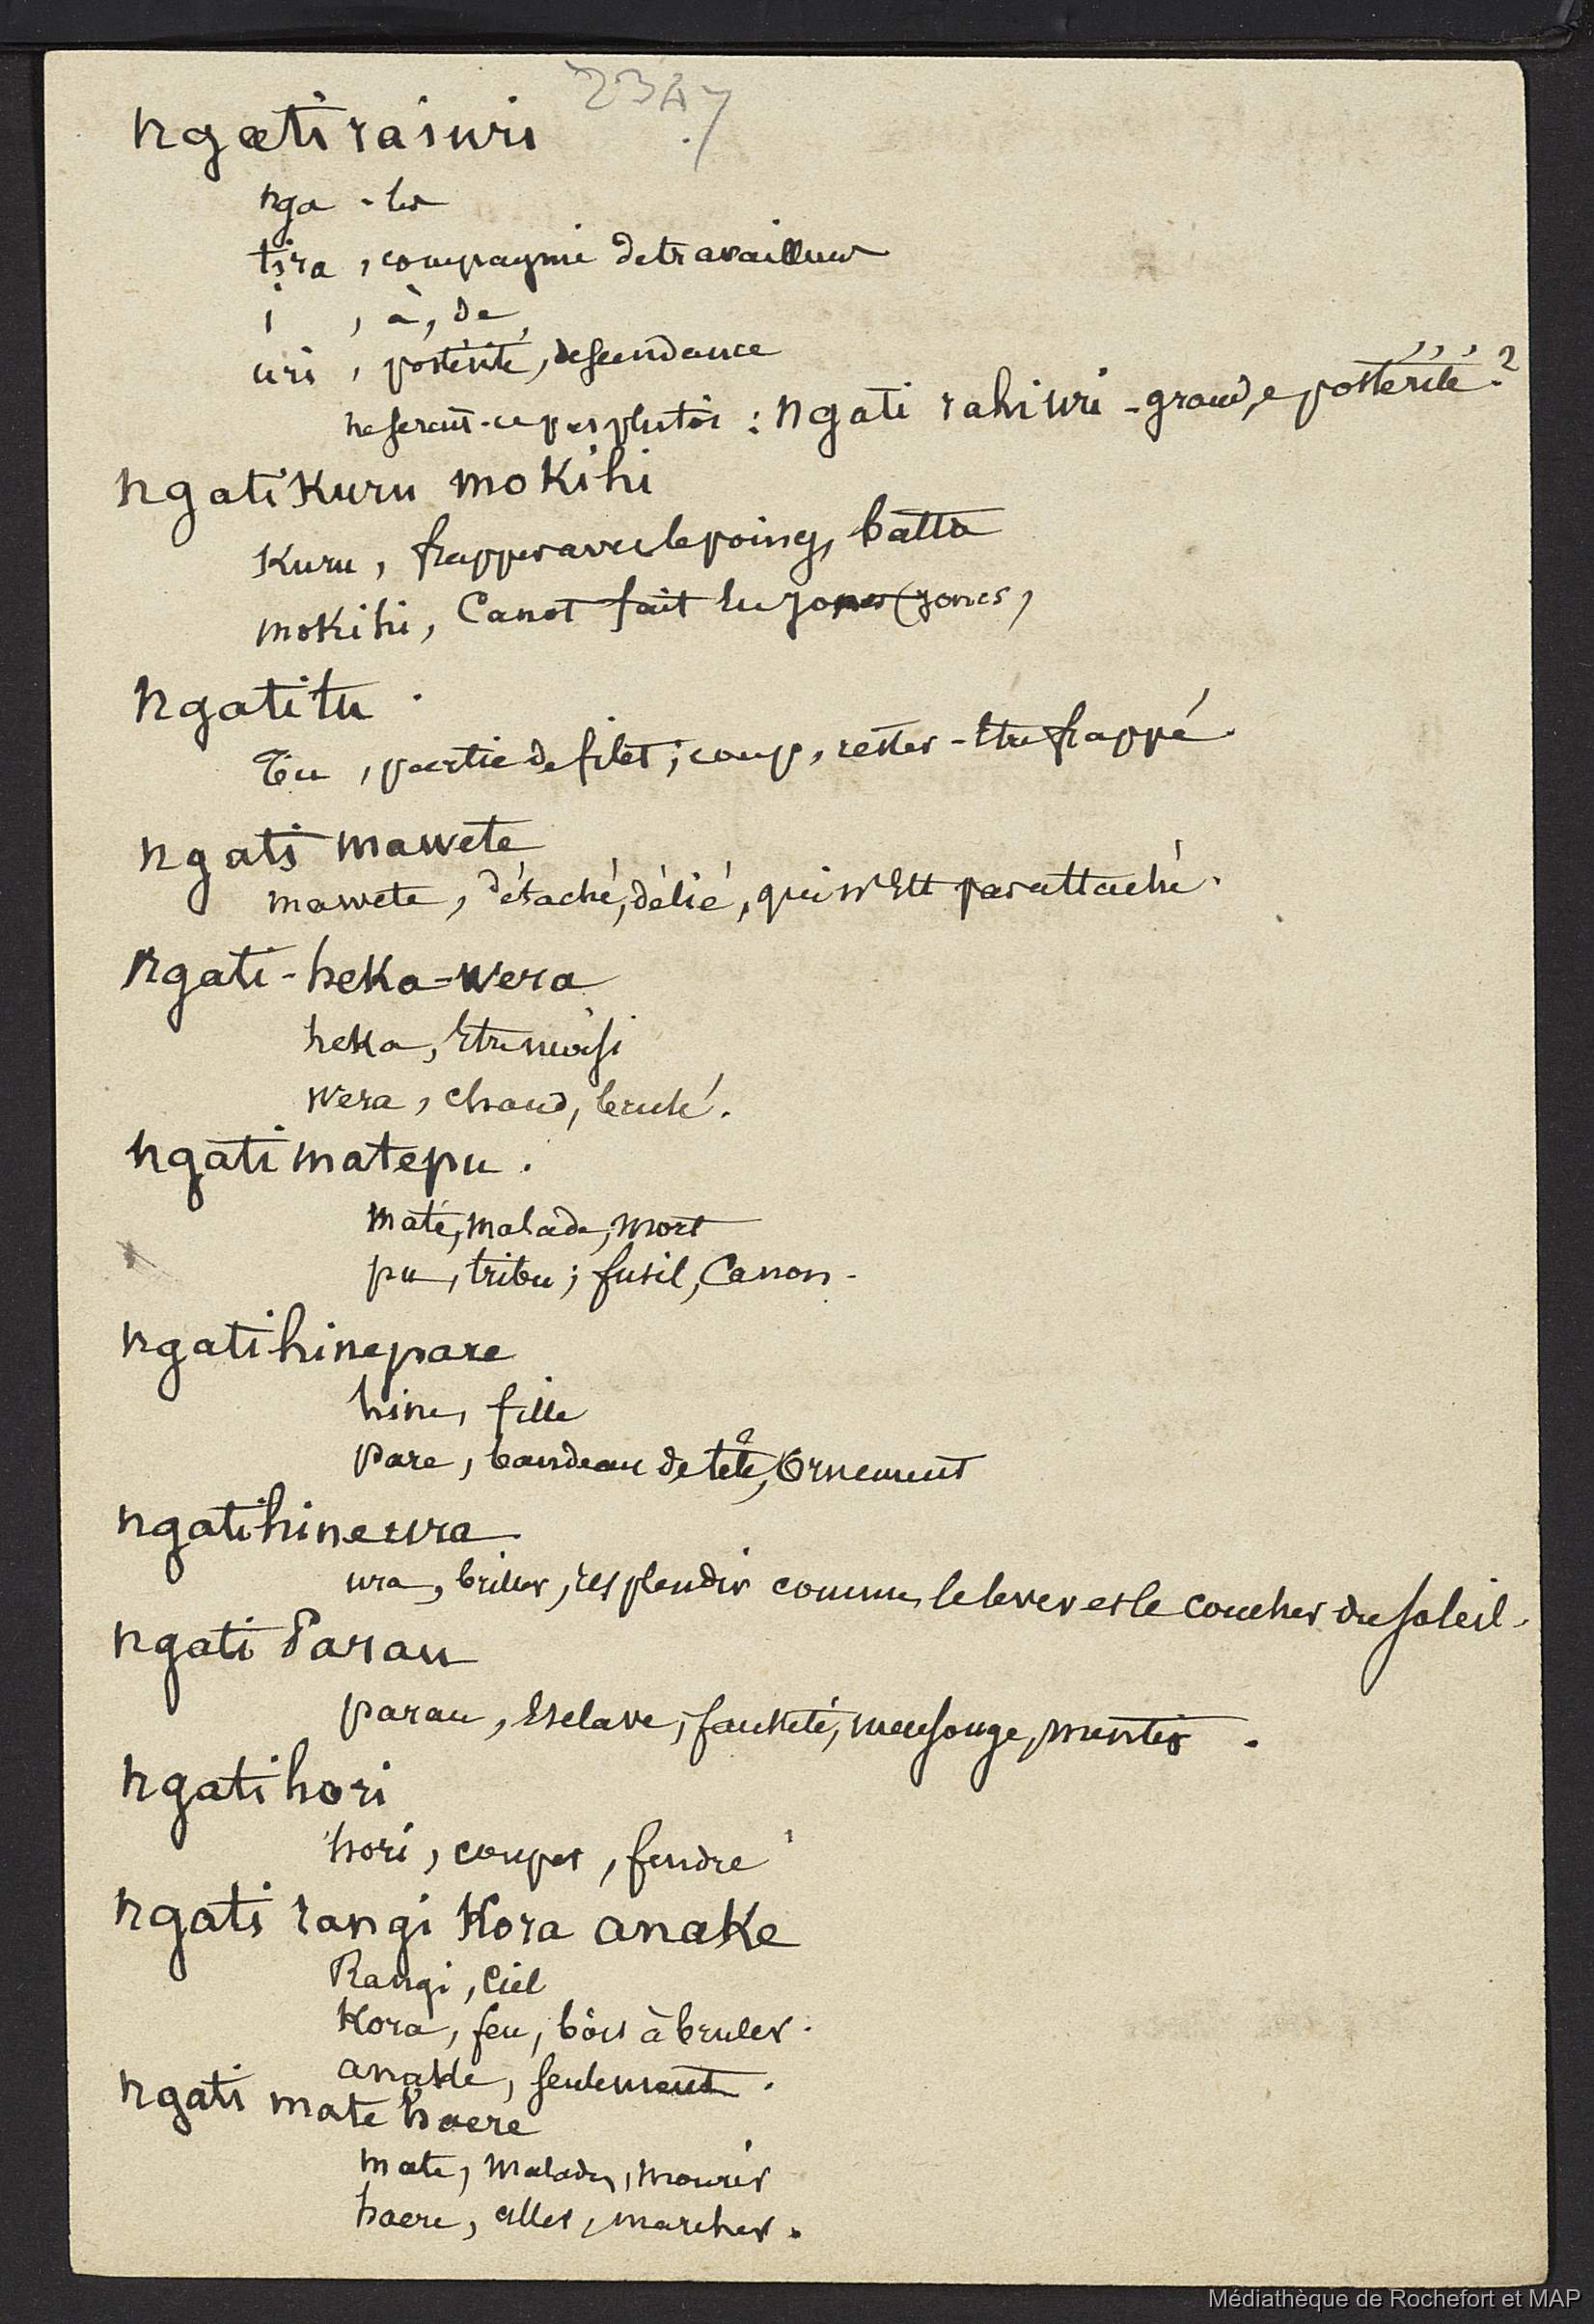 2347
ngati raiuri
nga - les
tira, compagnie de travailleurs
i , à, de
uri, postérité, descendance
ne serait-ce pas plutôt : Ngati rahiuri - grande postérité ?
ngati Kuru moKihi
Kuru, frapper avec le poing, battre
moKihi, Canot fait de (joncs,
ngatitu .
Tu, partie de filet ; coup, rester - être frappé.
ngati mawete
mawete, détaché, délié, qui n'est pas attaché.
Ngati-heKa-wera
heKa, être moisi
wera, chaud, brulé.
ngati matepu .
maté, malade, mort
pu, tribu ; fusil, Canon -
ngatihinepare
hine, fille
pare, bandeau de tête, Ornement
ngatihineura
ura, briller, resplendir comme le lever et le coucher du soleil.
ngati Parau
parau, esclave, fausseté, mensonge, mentir .
ngatihori
hori, couper, fendre
ngati rangi Kora anaKe
Rangi, ciel
Kora, feu, bois à bruler.
anaKe, seulement .
ngati mate haere
mate, malade, mourir
haere, aller, marcher.
Médiathèque de Rochefort et MAP